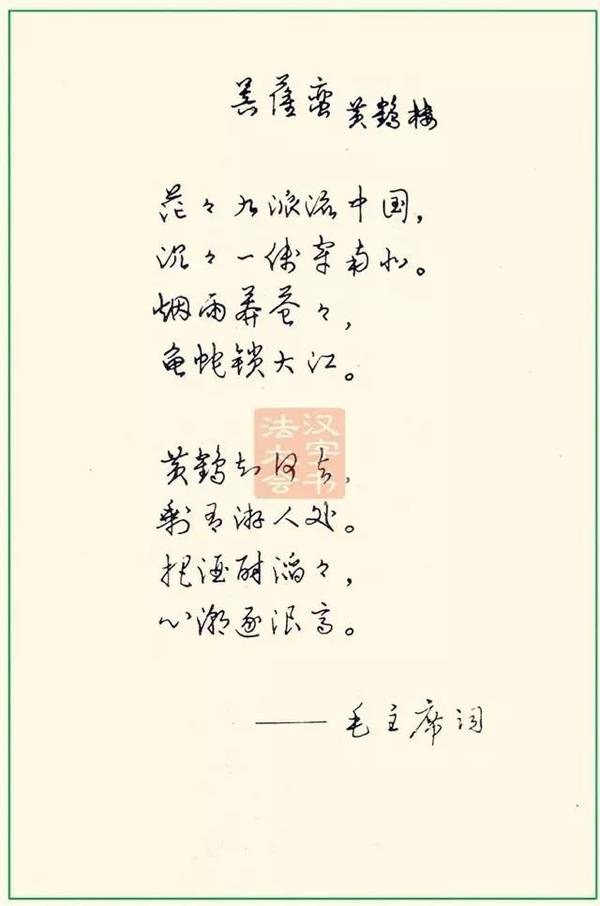 菩薩蛮 黄鹤楼
茫々九派流中国，
沉々一线穿南北。
烟雨莽苍々，
龟蛇锁大江。
汉字书法大会
黄鹤知何去，
剩有游人处。
把酒酎滔々，
心潮逐浪高。
——毛主席词